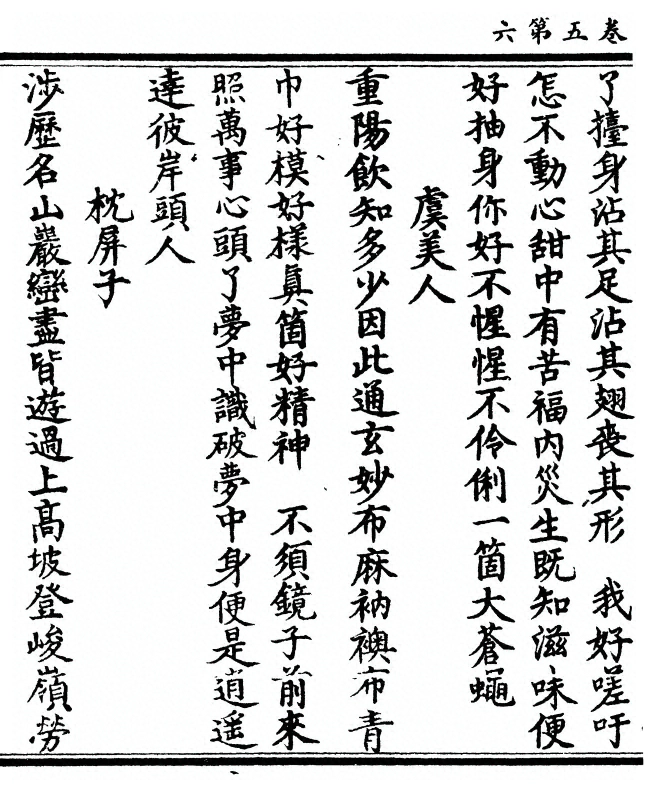 卷五第六
了擡身沾其足沾其翅喪其形　我好嗟吁
怎不動心甜中有苦福内災生既知滋味便
好抽身你好不惺惺不伶俐一箇大蒼蠅
虞美人
重陽飲知多少因此通玄妙布麻衲襖布青
巾好模好樣真箇好精神　不須鏡子前來
照萬事心頭了夢中識破夢中身便是逍遥
達彼岸頭人
枕屏子
涉歷名山巖巒盡皆遊過上高坡登峻嶺勞